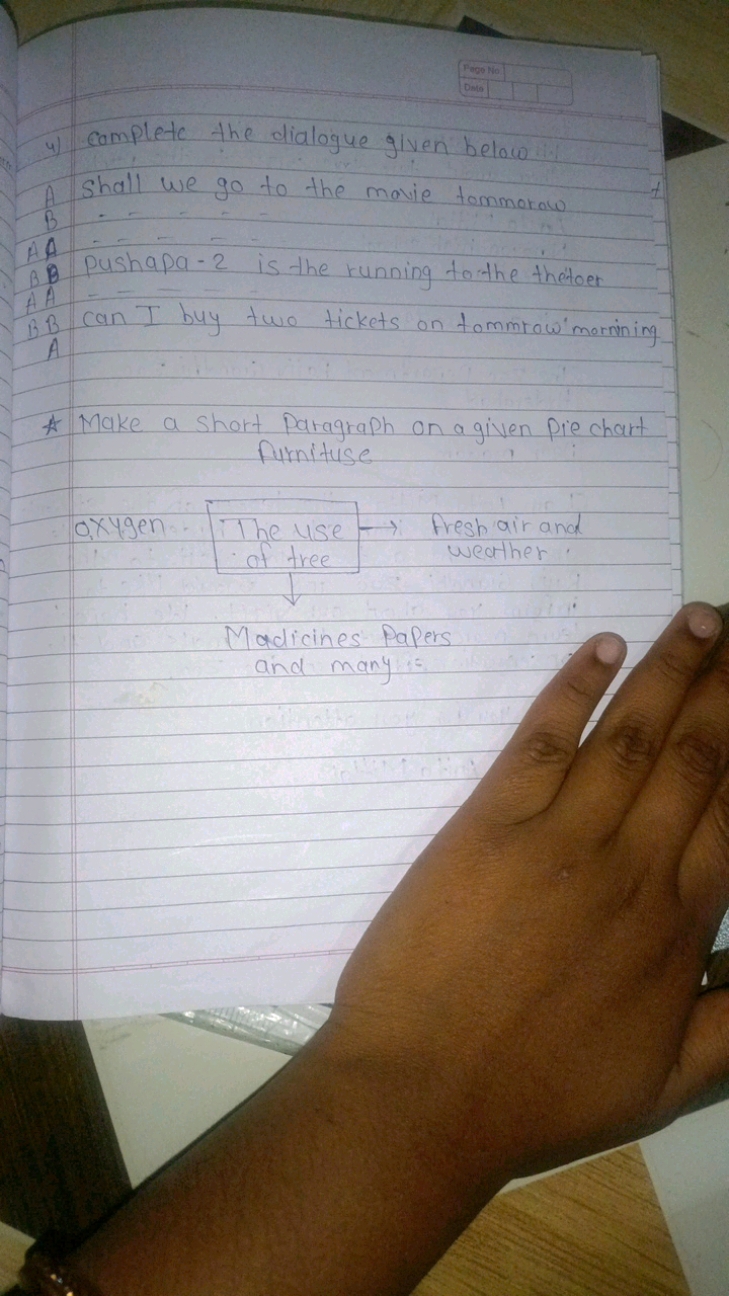 Page No
Date
4) complete the dialogue given below
A shall we go to the movie tommorow
B - - - - -
A A - - - - -
B B pushapa-2 is the running to the thetoer
A A - - - - -
B B can I buy two tickets on tommrow' mornining
A
☆ Make a short paragraph on a given pie chart
furnituse
oxygen The use → fresh air and
of tree weather
↓
Madicines Papers
and many :-